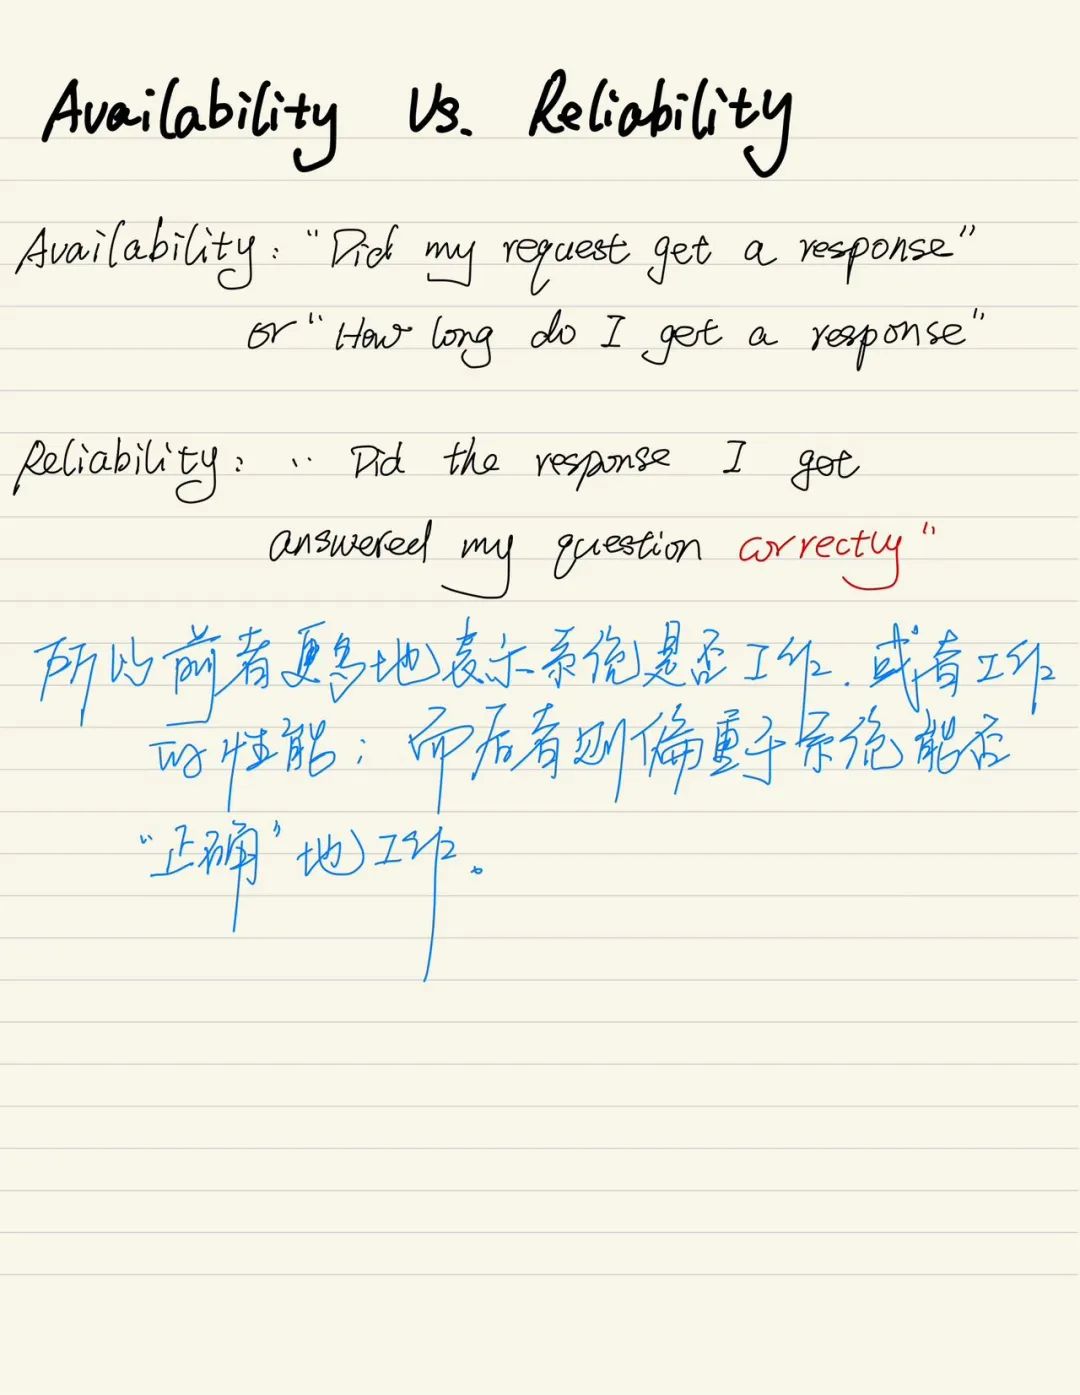 Availability Vs. Reliability
Availability: "Did my request get a response"
or "How long do I get a response"
Reliability: "Did the response I got
answered my question correctly"
所以前者更多地表示系统是否工作. 或者工作
的性能; 而后者则偏重于系统能否
"正确"地工作。